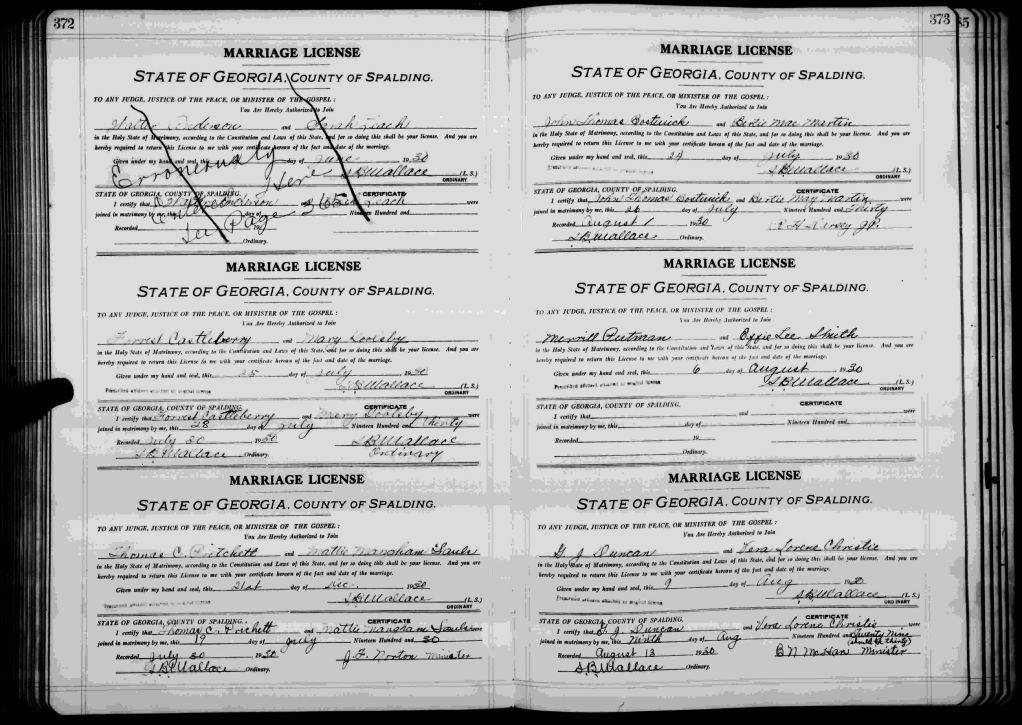 372
MARRIAGE LICENSE
STATE OF GEORGIA, COUNTY OF SPALDING.
TO ANY JUDGE, JUSTICE OF THE PEACE, OR MINISTER OF THE GOSPEL:
You Are Hereby Authorized to Join
Walter and Sarah
in the Holy State of Matrimony, according to the Constitution and Laws of this State, and for so doing this shall be your license. And you are
hereby required to return this License to me with your certificate hereon of the fact and date of the marriage.
Given under my hand and seal, this day of June 1930
Erroneously
Here
S B Wallace (L. S.)
ORDINARY
STATE OF GEORGIA, COUNTY OF SPALDING. CERTIFICATE
I certify that and were
joined in matrimony by me, this day of Nineteen Hundred and
See Page 365
Recorded 19
Ordinary.
MARRIAGE LICENSE
STATE OF GEORGIA, COUNTY OF SPALDING.
TO ANY JUDGE, JUSTICE OF THE PEACE, OR MINISTER OF THE GOSPEL:
You Are Hereby Authorized to Join
Forrest Castleberry and Mary
in the Holy State of Matrimony, according to the Constitution and Laws of this State, and for so doing this shall be your license. And you are
hereby required to return this License to me with your certificate hereon of the fact and date of the marriage.
Given under my hand and seal, this 25 day of July 1930
Prescribed affidavit attached to original license
S B Wallace (L. S.)
ORDINARY
STATE OF GEORGIA, COUNTY OF SPALDING. CERTIFICATE
I certify that Forrest Castleberry and Mary were
joined in matrimony by me, this 28 day of July Nineteen Hundred and thirty
Recorded July 30 1930 S B Wallace
S B Wallace Ordinary. Ordinary
MARRIAGE LICENSE
STATE OF GEORGIA, COUNTY OF SPALDING.
TO ANY JUDGE, JUSTICE OF THE PEACE, OR MINISTER OF THE GOSPEL:
You Are Hereby Authorized to Join
Thomas C. Pritchett and Mattie Mangham
in the Holy State of Matrimony, according to the Constitution and Laws of this State, and for so doing this shall be your license. And you are
hereby required to return this License to me with your certificate hereon of the fact and date of the marriage.
Given under my hand and seal, this 21st day of Dec. 1930
Prescribed affidavit attached to original license
S B Wallace (L. S.)
ORDINARY
STATE OF GEORGIA, COUNTY OF SPALDING. CERTIFICATE
I certify that Thomas C. Prichett and Mattie Mangham were
joined in matrimony by me, this 19 day of July Nineteen Hundred and 30
Recorded July 30 1930 J. F. Norton Minister
S B Wallace Ordinary.
373
MARRIAGE LICENSE
STATE OF GEORGIA, COUNTY OF SPALDING.
TO ANY JUDGE, JUSTICE OF THE PEACE, OR MINISTER OF THE GOSPEL:
You Are Hereby Authorized to Join
John Thomas Bostwick and Bertie Mae Martin
in the Holy State of Matrimony, according to the Constitution and Laws of this State, and for so doing this shall be your license. And you are
hereby required to return this License to me with your certificate hereon of the fact and date of the marriage.
Given under my hand and seal, this day of July 1930
S B Wallace (L. S.)
ORDINARY
STATE OF GEORGIA, COUNTY OF SPALDING. CERTIFICATE
I certify that John Thomas Bostwick and Bertie May Martin were
joined in matrimony by me, this 26 day of July Nineteen Hundred and Thirty
Recorded August 1 1930 J.P.
S B Wallace Ordinary.
MARRIAGE LICENSE
STATE OF GEORGIA, COUNTY OF SPALDING.
TO ANY JUDGE, JUSTICE OF THE PEACE, OR MINISTER OF THE GOSPEL:
You Are Hereby Authorized to Join
Merrill Putman and Effie Lee Smith
in the Holy State of Matrimony, according to the Constitution and Laws of this State, and for so doing this shall be your license. And you are
hereby required to return this License to me with your certificate hereon of the fact and date of the marriage.
Given under my hand and seal, this 6 day of August 1930
Prescribed affidavit attached to original license
S B Wallace (L. S.)
ORDINARY
STATE OF GEORGIA, COUNTY OF SPALDING. CERTIFICATE
I certify that and were
joined in matrimony by me, this day of Nineteen Hundred and
Recorded 19
Ordinary.
MARRIAGE LICENSE
STATE OF GEORGIA, COUNTY OF SPALDING.
TO ANY JUDGE, JUSTICE OF THE PEACE, OR MINISTER OF THE GOSPEL:
You Are Hereby Authorized to Join
G J Duncan and Vera Lorene Christie
in the Holy State of Matrimony, according to the Constitution and Laws of this State, and for so doing this shall be your license. And you are
hereby required to return this License to me with your certificate hereon of the fact and date of the marriage.
Given under my hand and seal, this 9 day of Aug 1930
Prescribed affidavit attached to original license
S B Wallace (L. S.)
ORDINARY
STATE OF GEORGIA, COUNTY OF SPALDING. CERTIFICATE
I certify that G. J. Duncan and Vera Lorene Christie were
joined in matrimony by me, this Ninth day of Aug Nineteen Hundred and Twenty Nine
Recorded August 13 1930 Minister
S B Wallace Ordinary.